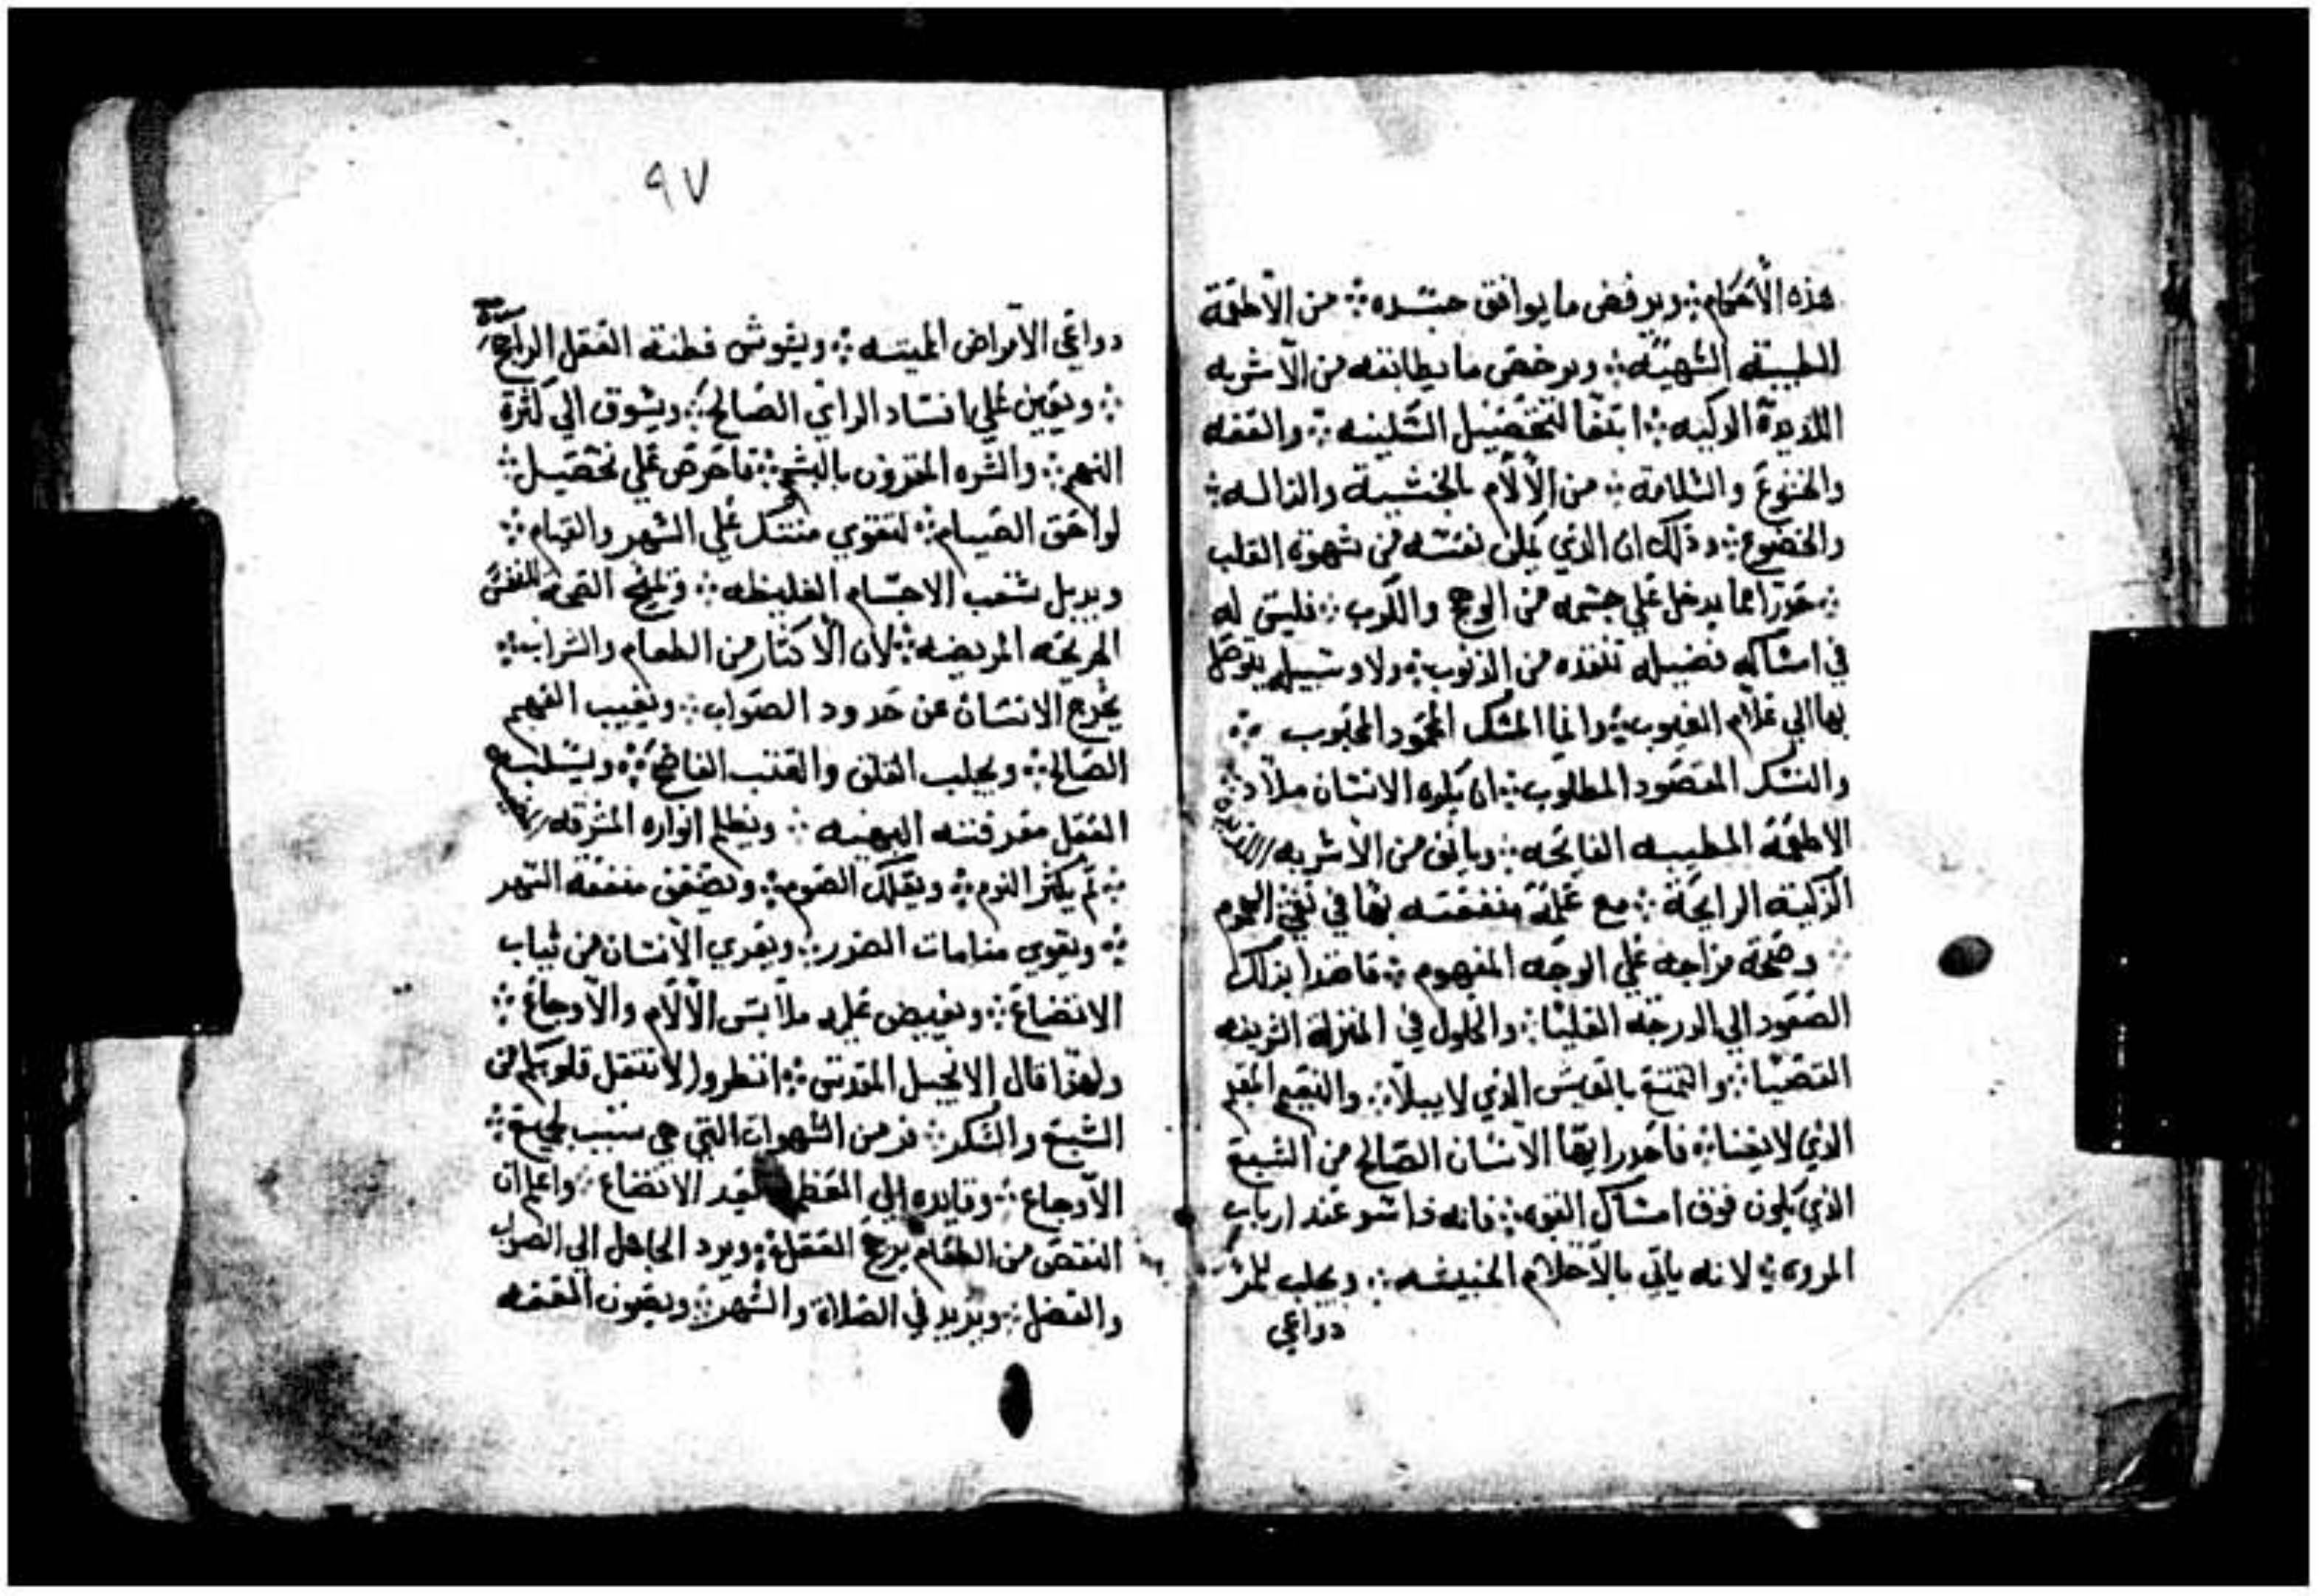 هذه الأحكام ويرفض ما يوافق جسده من الأطعمة
الطيبة الشهية ويرخص ما يطابقه من الأشربه
اللذيذة الزكيه ابتغا لتحصيل السكينه والعفه
والخنوع والسلامة من الألام بالخشية والذاله
والخضوع وذلك ان الذي يملك نفسه من شهوة القلب
حذرا مما يدخل علي جسمه من الوجع والكرب فليس له
في امساكه فضيله تنقذه من الذنوب ولا وسيله يتوصل
بها الي علام الغيوب وانما المسك المحمود المحبوب
والنسك المقصود المطلوب ان يكره الانسان ملاد
الاطعمة المطيبه الفايحه ويانف من الأشربه اللذيذه
الزكية الرايحة مع علمه بمنفعته بها في نفي الهموم
وصحة مزاجه علي الوجه المفهوم قاصدا بذلك
الصعود الي الدرجة العليا والحلول في المنزلة الشريفه
القصيا والتمتع بالعيش الذي لا يبلا والنعيم المقيم
الذي لا يفنا فاحذر ايها الانسان الصالح من الشبع
الذي يكون فوق امساك القوه فانه فـاشو عند ارباب
المروه لانه ياتي بالأحلام الخبيثه ويجلب للمر
دواعي
٩٧
دواعي الأمراض المميته ويشوش فطنة العقل الراجح
ويعين علي افساد الراي الصالح ويشوق الي كثرة
النهم والشره المقرون بالبشم فاحرص علي تحصيل
لواحق الصيام لتقوي منسك علي السهر والقيام
ويزيل شغب الاجسام الغليظه وتمنح الصحة للنفس
المريضه لان الأكثار من الطعام والشراب
يخرج الانسان عن حدود الصواب ويغيب الفهم
الصالح ويجلب القلق والغضب الفاضح ويسلب
العقل معرفته البهيه ويظلم انواره المشرقه
ثم يكثر النوم ويقلل الصوم ويضعف منفعة السهر
ويقوي منامات الضرر ويعري الأنسان من ثياب
الاتضاع ويفيض عليه ملابس الألام والأوجاع
ولهذا قال الانجيل المقدس انظروا لا تثقل قلوبكم من
الشبع والسكر فر من الشهوات التي هي سبب لجميع
الأوجاع وقايده الي العظمه بعد الاتضاع واعلم ان
النقص من الطعام يرجح العقل ويرد الجاهل الي الصواب
والفضل ويزيد في الصلاة والسهر ويصون العفه